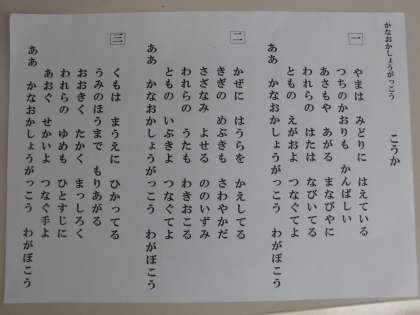 かなおかしょうがっこう
こうか
一
やまは みどりに はえている
つちのかおりも かんばしい
あさもや あがる まなびやに
われらの はたは なびいてる
ともの えがおよ つなぐてよ
ああ かなおかしょうがっこう わがぼこう
二
かぜに はうらを かえしてる
きぎの めぶきも さわやかだ
さざなみ よせる ののいずみ
われらの うたも わきおこる
ともの いぶきよ つなぐてよ
ああ かなおかしょうがっこう わがぼこう
三
くもは まうえに ひかってる
うみのほうまで もりあがる
おおきく たかく まっしろく
われらの ゆめも ひとすじに
あおぐ せかいよ つなぐ手よ
ああ かなおかしょうがっこう わがぼこう